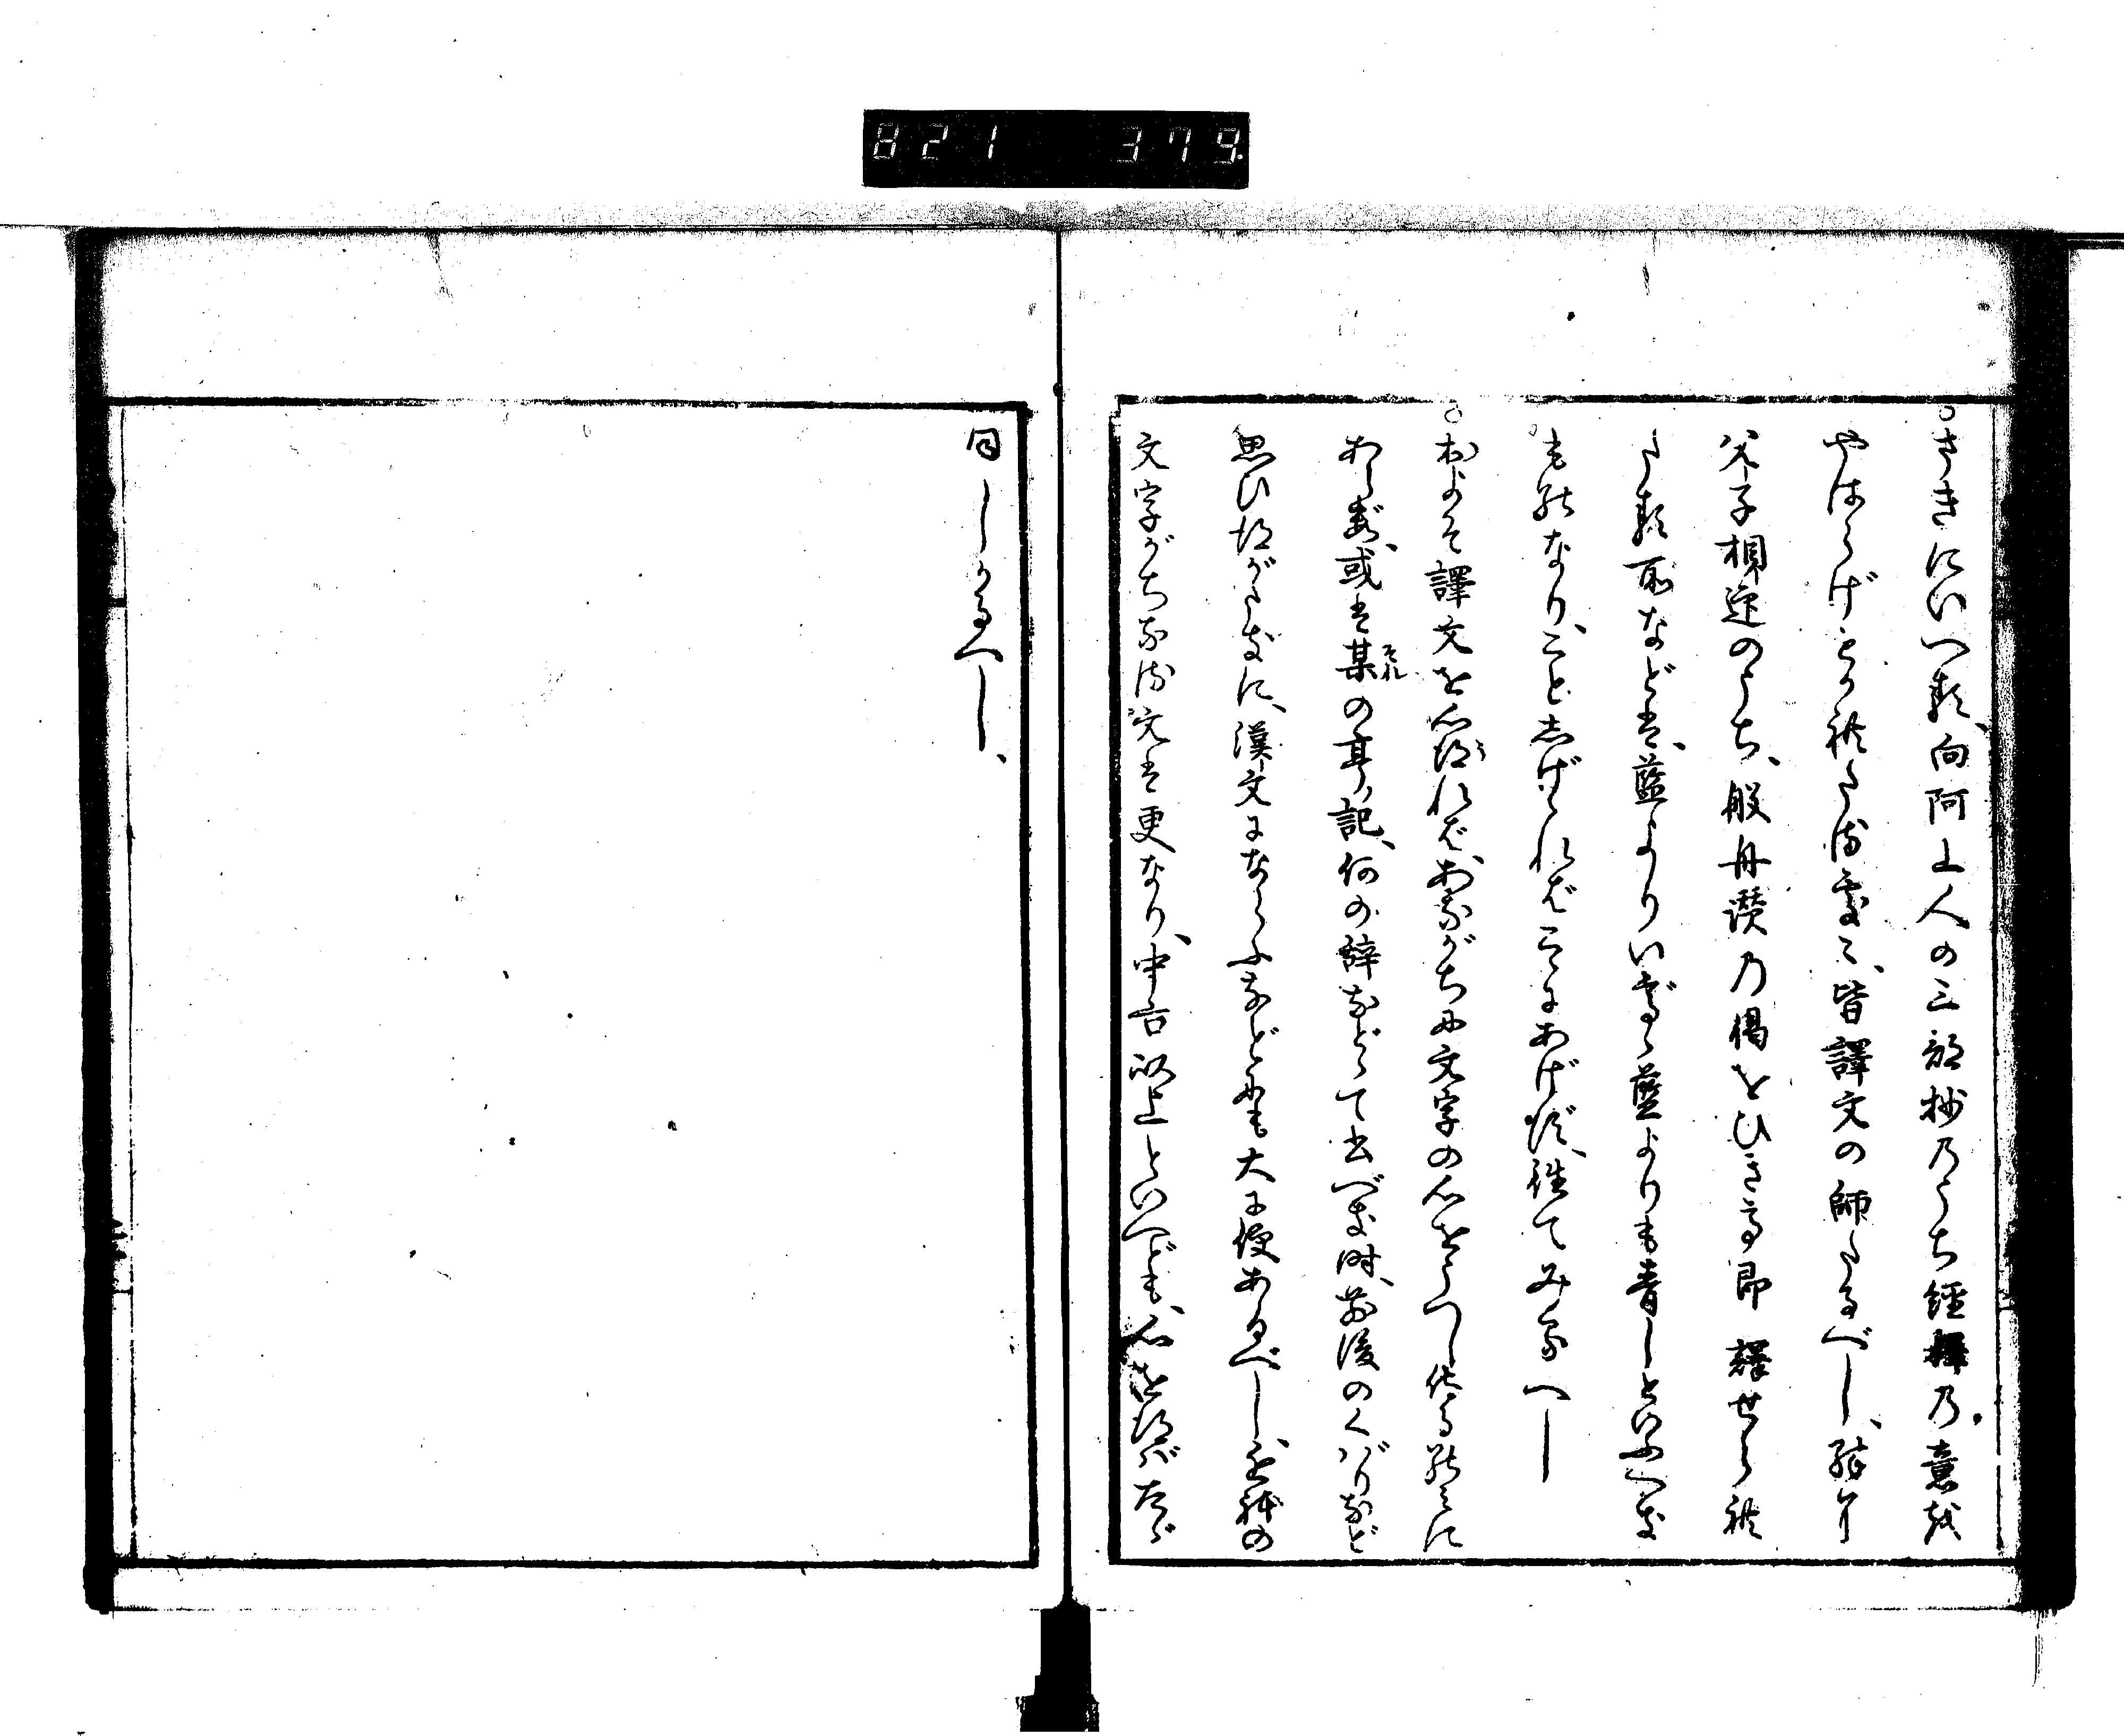 821 379
○さきにいへる、向阿上人の三部抄のうち経釋の意を
やはらげとかれたる處々、皆譯文の師たるべし、殊に
父子相迎のうち、般舟讃の偈をひき即譯せられ
たる所などは、藍よりいでゝ藍よりも青しといふべき
ものなり、ことしげければこゝにあげず、往てみるべし
○おおよそ譯文を心得れば、あながちに文字の心をうつし作るのみに
あらず、或は某の亭ノ記、何の辞などゝて書べき時、前後のくばりなど
思ひ得がたきに、漢文にならふなどにも大に便あるべし、
文字がちなる文は更なり、中古以上といへども、心を得ばたゞ
同じかるべし、